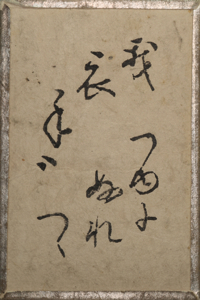 我
衣
手ハ
つゆに
ぬれ
つゝ